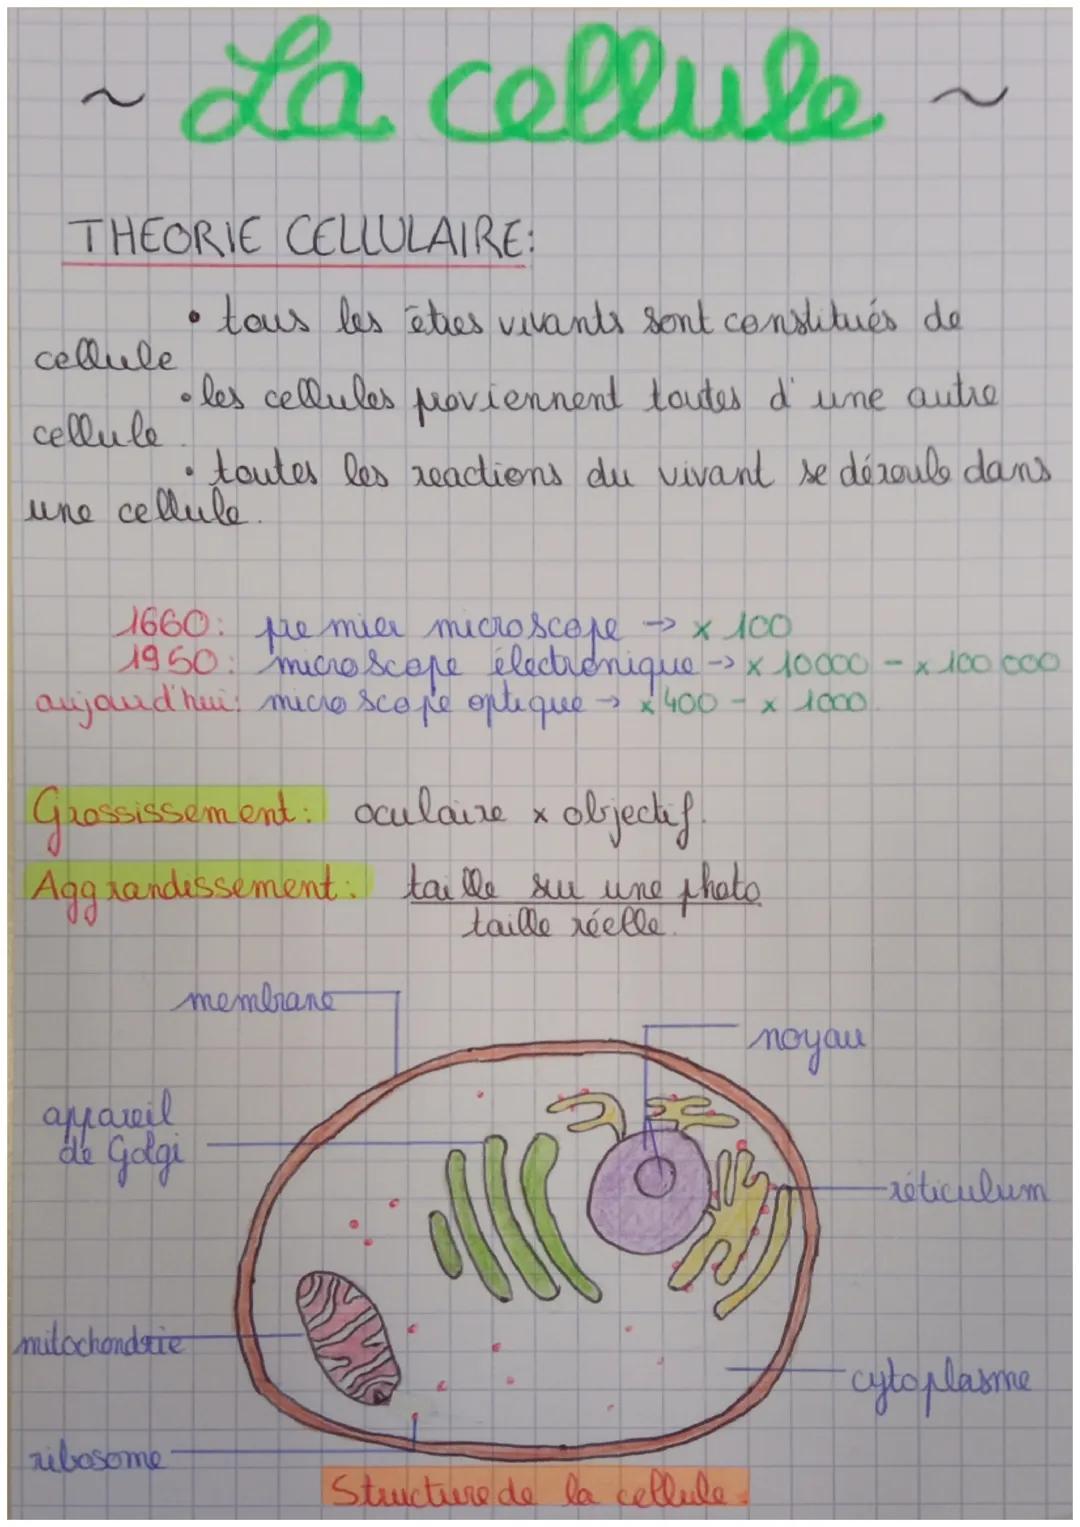 ~ La cellule ~
THEORIE CELLULAIRE:
• tous les êtres vivants sont constitués de
cellule
• les cellules proviennent toutes d'une autre
cellule.
• toutes les reactions du vivant se déroule dans
une cellule.
1660: premier microscope → x 100
1950: microscope électronique → x 10000 - x 100 000
aujourd'hui: microscope optique → x 400 - x 1000.
Grossissement: oculaire x objectif.
Aggrandissement: taille sur une photo
taille réelle.
membrane
noyau
appareil
de Golgi
réticulum
mitochondrie
cytoplasme
ribosome
Structure de la cellule.